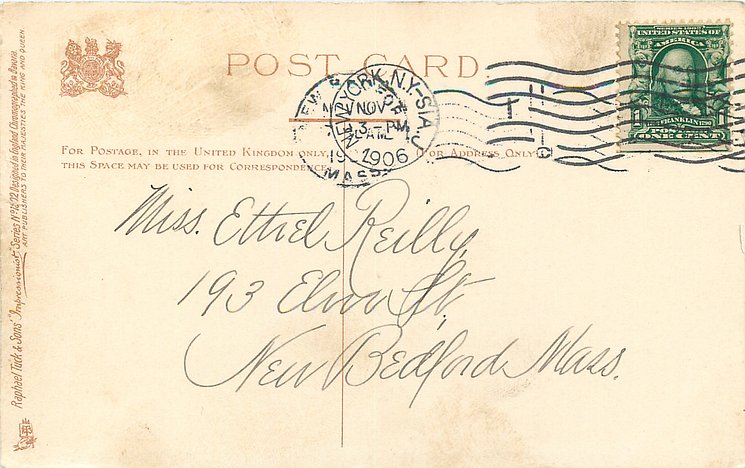 POST CARD.
FOR POSTAGE, IN THE UNITED KINGDOM ONLY,
(FOR ADDRESS ONLY.)
THIS SPACE MAY BE USED FOR CORRESPONDENCE
Raphael Tuck & Sons' "Impressionist" Series Nº Designed in England, Chromographed in Bavaria.
ART PUBLISHERS TO THEIR MAJESTIES THE KING AND QUEEN.
NEW YORK, N.Y.-STA.
NOV
1906
MASS.
SERIES 1902
UNITED STATES OF
AMERICA
FRANKLIN 1790
POSTAGE
ONE CENT
Miss. Ethel Reilly,
193 Elm St,
New Bedford Mass.